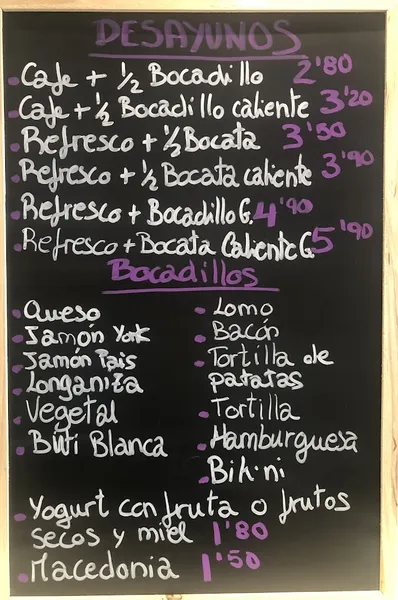 DESAYUNOS
Cafe + ½ Bocadillo 2'80
Cafe + ½ Bocadillo caliente 3'20
Refresco + ½ Bocata 3'50
Refresco + ½ Bocata caliente 3'90
Refresco + Bocadillo G. 4'90
Refresco + Bocata Caliente G. 5'90
Bocadillos
Queso
Jamón York
Jamón Pais
Longaniza
Vegetal
Buti Blanca
Lomo
Bacón
Tortilla de
patatas
Tortilla
Hamburguesa
Bikini
Yogurt con fruta o frutos
secos y miel 1'80
Macedonia 1'50